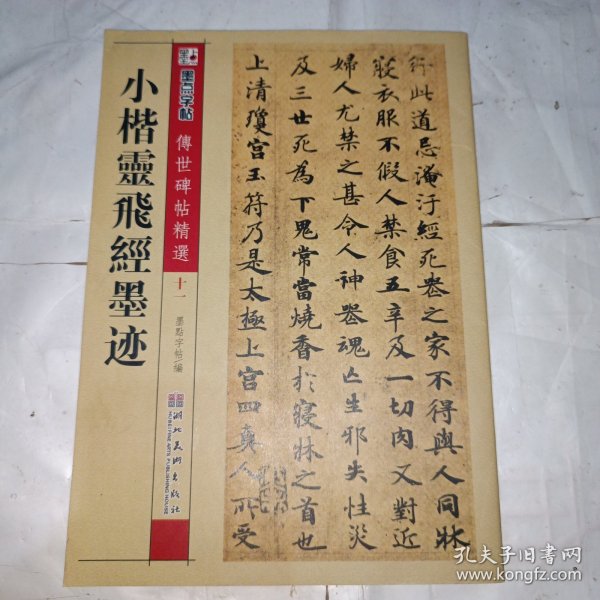 小楷靈飛經墨迹
墨点字帖
傳世碑帖精選
十一
墨點字帖/編
湖北美術出版社
HUBEI FINE ARTS PUBLISHING HOUSE
行此道忌淹汙經死喪之家不得與人同牀
寢衣服不假人禁食五辛及一切肉又對近
婦人尤禁之甚令人神喪魂亡生邪失性災
及三世死為下鬼常當燒香於寢牀之首也
上清瓊宫玉符乃是太極上宫四真人所受
孔夫子旧书网
www.kongfz.com